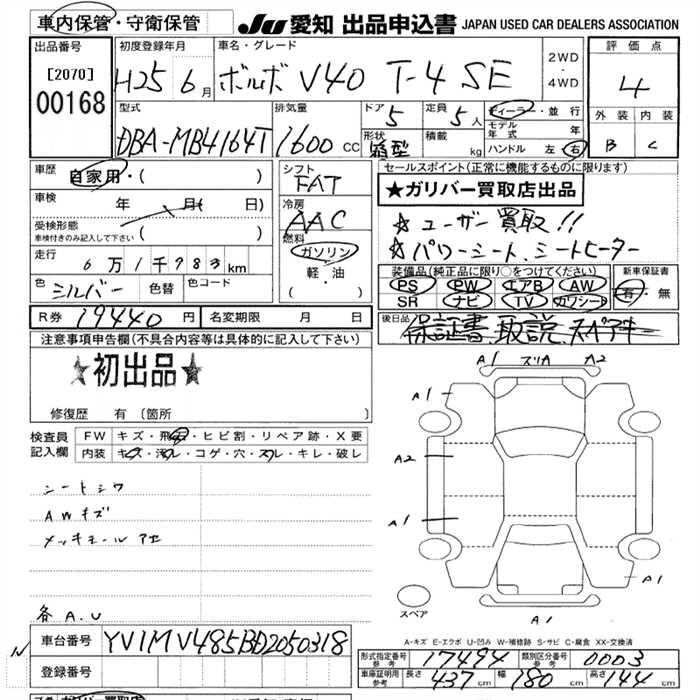 車内保管・守衛保管 JU 愛知 出品申込書 JAPAN USED CAR DEALERS ASSOCIATION
出品番号 初度登録年月 車名・グレード 評価点
[2070] H25 6月 ボルボ V40 T-4 SE 2WD・4WD 4
00168 型式 排気量 ドア 定員 ディーラー・並行 外装 内装
DBA-MB4164T 1600CC 5 5人 モデル年式 年 B C
形状 箱型 積載 kg ハンドル 左 右
車歴 自家用・( ) シフト セールスポイント(正常に機能するものに限ります)
FAT ★ガリバー買取店出品
車検 年 月( 日) 冷房 ☆ユーザー買取!!
受検形態 AAC ☆パワーシート、シートヒーター
車検付きのみ記入して下さい ( ) 燃料
走行 6万1千983km ガソリン 装備品(純正品に限り○をつけてください) 新車保証書
色 シルバー 色替 色コード 軽・油 PS PW エアB AW 有・無
( ) SR ナビ TV カワシート
R券 19440円 名変期限 月 日 後日品 保証書、取説、スペアキー
注意事項申告欄(不具合内容等は具体的に記入して下さい) A1 ズリA A2
★初出品★ A1
修復歴 有 〔箇所 〕
検査員 FW キズ・飛石・ヒビ割・リペア跡・X要
記入欄 内装 キズ・汚レ・コゲ・穴・スレ・キレ・破レ
A2
シートシワ
AWキズ A1
メッキモール アセ
A1
スペア
各A.U A1
A-キズ E-エクボ U-凹み W-補修跡 S-サビ C-腐食 XX-交換済
車台番号 YV1MV485BD2050318
形式指定番号 参考 17494 類別区分番号 参考 0003
登録番号 車庫証明用 参考 長さ 437cm 幅 180cm 高さ 144cm